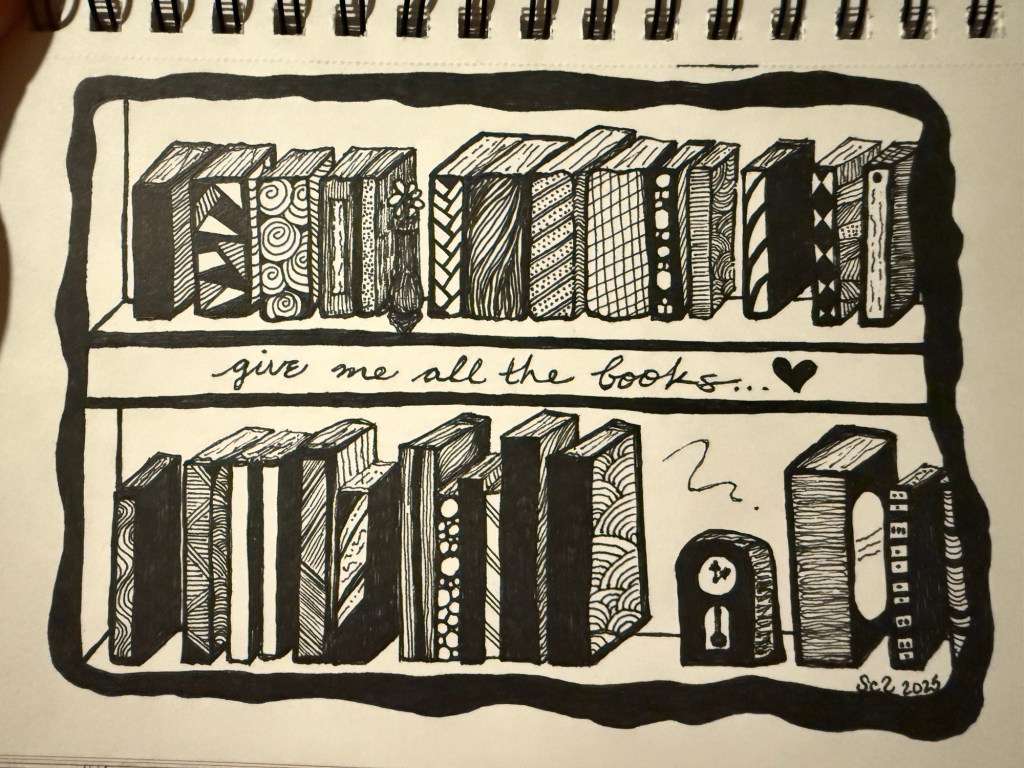 give me all the books... ♥
Sc2 2025